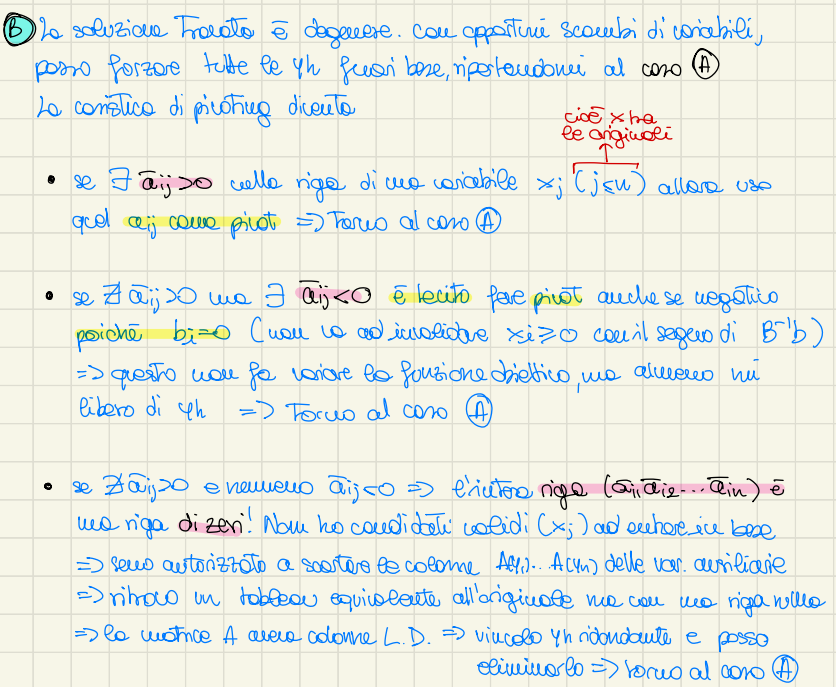 B La soluzione trovata è degenere. con opportuni scambi di variabili,
posso forzare tutte le yh fuori base, riportandomi al caso A
La casistica di pivoting diventa
cioè x tra
le originali
• se ∃ āij>0 nella riga di una variabile xj (j≤n) allora uso
quel aij come pivot => Torno al caso A
• se ∄ āij>0 ma ∃ āij<0 è lecito fare pivot anche se negativo
poiché bi=0 (non va ad invalidare xi≥0 con il segno di B⁻¹b)
=> questo non fa variare la funzione obiettivo, ma almeno mi
libero di yh => Torno al caso A
• se ∄ āij>0 e nemmeno āij<0 => l'intera riga (āi1 āi2... āin) è
una riga di zeri! Non ho candidati validi (xj) ad entrare in base
=> sono autorizzato a scartare le colonne A(y1)... A(yn) delle var. ausiliarie
=> ritrovo un tableau equivalente all'originale ma con una riga nulla
=> la matrice A aveva colonne L.D. => vincolo yh ridondante e posso
eliminarlo => torno al caso A